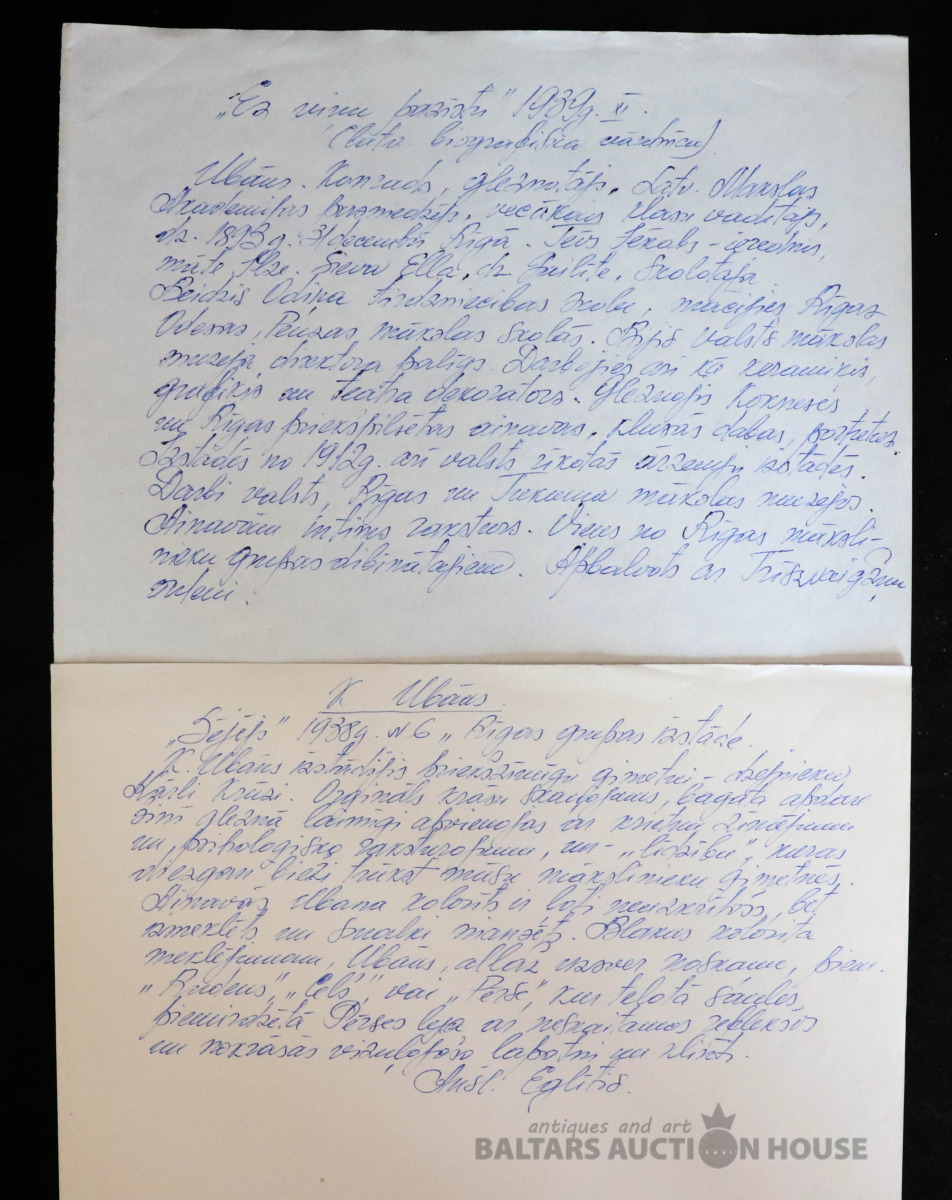 „Es viņu pazīstu" 1939g. XI.
(Latv. biografiska vārdnīca)
Ubāns. Konrads, gleznotājs. Latv. Mākslas
Akadēmijas pasniedzējs, vecākais klašu vadītājs,
dz. 1893g. 31 decembrī Rīgā. Tēvs Jēkabs – ierēdnis,
māte Ilze. Sieva Ella, dz. skolotāja
Beidzis Odiņa tirdzniecības skolu, mācījies Rīgas
Odesas, Penzas mākslas skolās. Bijis valsts mākslas
muzeja direktora palīgs. Darbojies arī kā keramiķis,
grafiķis un teātra dekorators. Gleznojis Kokneses
un Rīgas priekšpilsētas ainavas, klusās dabas, portretus.
Izstādēs no 1912g. arī valsts rīkotās ārzemju izstādēs.
Darbi valsts, Rīgas un Tukuma mākslas muzejos.
Ainavām intīms raksturs. Viens no Rīgas māksli-
nieku grupas dibinātājiem. Apbalvots ar Trīszvaigžņu
ordeni.
K Ubāns.
„Sējējs" 1938g. N6 „Rīgas grupas izstāde.
K. Ubāns izstādījis priekšzīmīgu ģimetni – dzejnieku
Kārli Krūzi. Orģināls krāsu skaņojums, bagāta apdare
šinī gleznā laimīgi apvienojas ar krietnu zīmējumu
un psiholoģisko raksturojumu, un – „līdzību", kuras
diezgan bieži trūkst mūsu mākslinieku ģimetnēs.
Ainavās Ubana kolorīts ir ļoti neuzkrītošs, bet
izmeklēts un smalki niansēts. Blakus kolorīta
meklējumam, Ubāns, allaž uzsver noskaņu, piem.
„Rudens", „Ceļš", vai „Pērse", kur tēlotā saules
piemirdzētā Pērses leja ar neskaitamos refleksos
un nokrāsās vizuļojošo lapotni un klinti.
Anšl. Eglītis.
antiques and art
BALTARS AUCTION HOUSE